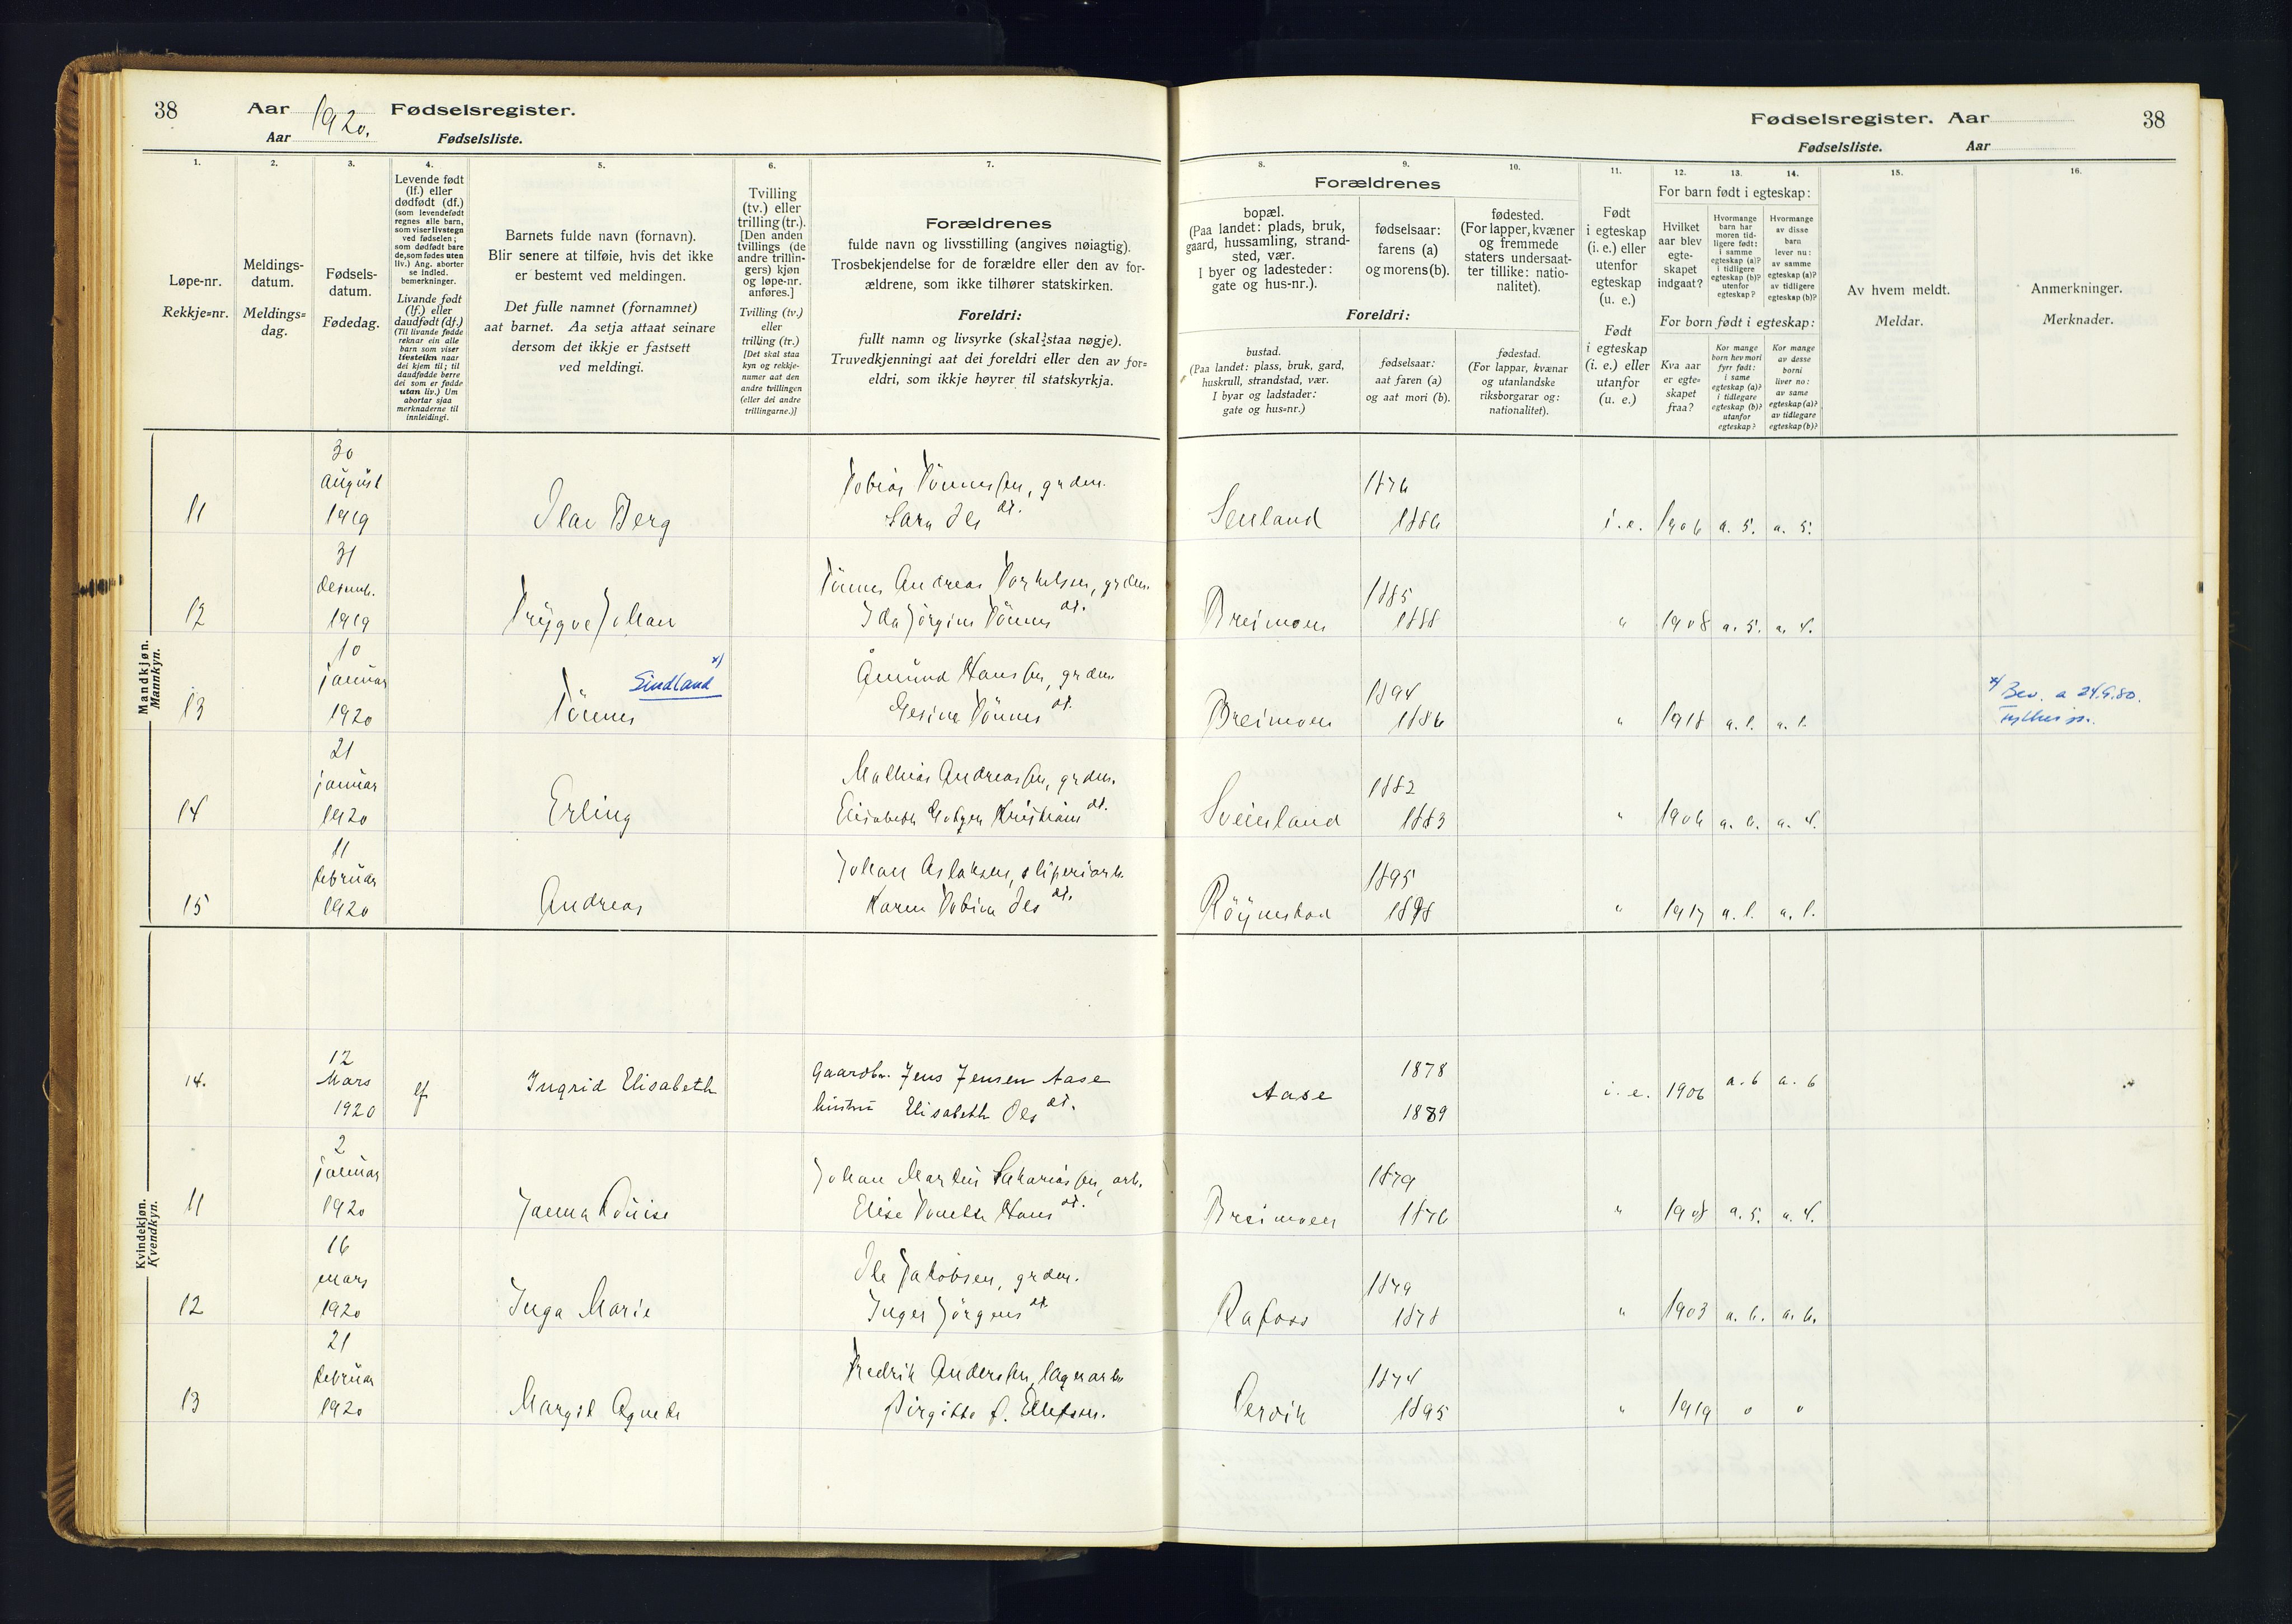 38
Aar 1920. Fødselsregister.
Aar Fødselsliste.
Fødselsregister. Aar
38
Fødselsliste. Aar
1. 2. 3. 4. 5. 6. 7.
Løpe-nr.
Rekkje=nr.
Meldings-
datum.
Meldings=
dag.
Fødsels-
datum.
Fødedag.
Levende født
(lf.) eller
dødfødt (df.)
(som levendefødt
regnes alle barn,
som viser livstegn
ved fødselen;
som dødfødt bare
de, som fødes uten
liv.) Ang. aborter
se indled.
bemerkninger.
Livande født
(lf.) eller
daudfødt (df.)
(Til livande fødde
reknar ein alle
barn som viser
livsteikn naar
dei kjem til; til
daudfødde berre
dei som er fødde
utan liv.) Um
abortar sjaa
merknaderne til
innleidingi.
Barnets fulde navn (fornavn).
Blir senere at tilføie, hvis det ikke
er bestemt ved meldingen.
Det fulle namnet (fornamnet)
aat barnet. Aa setja attaat seinare
dersom det ikkje er fastsett
ved meldingi.
Tvilling
(tv.) eller
trilling (tr.).
[Den anden
tvillings (de
andre trillin-
gers) kjøn
og løpe-nr.
anføres.]
Tvilling (tv.)
eller
trilling (tr.)
[Det skal staa
kyn og rekkje-
numer aat den
andre tvillingen
(eller dei andre
trillingarne.)]
Forældrenes
fulde navn og livsstilling (angives nøiagtig).
Trosbekjendelse for de forældre eller den av for-
ældrene, som ikke tilhører statskirken.
Foreldri:
fullt namn og livsyrke (skal staa nøgje).
Truvedkjenningi aat dei foreldri eller den av for=
eldri, som ikkje høyrer til statskyrkja.
8. 9. 10. 11. 12. 13. 14. 15. 16.
Forældrenes
bopæl.
(Paa landet: plads, bruk,
gaard, hussamling, strand-
sted, vær.
I byer og ladesteder:
gate og hus-nr.).
fødselsaar:
farens (a)
og morens (b).
fødested.
(For lapper, kvæner
og fremmede
staters undersaat-
ter tillike: natio-
nalitet).
Foreldri:
bustad.
(Paa landet: plass, bruk, gard,
huskrull, strandstad, vær.
I byar og ladstader:
gate og hus=nr.)
fødselsaar:
aat faren (a)
og aat mori (b).
fødestad.
(For lappar, kvænar
og utanlandske
riksborgarar og:
nationalitet).
Født
i egteskap
(i. e.) eller
utenfor
egteskap
(u. e.)
Født
i egteskap
(i. e.) eller
utanfor
egteskap
(u. e.)
For barn født i egteskap:
Hvilket
aar blev
egte-
skapet
indgaat?
Hvormange
barn har
moren tid-
ligere født:
i samme
egteskap (a)?
i tidligere
egteskap (b)?
utenfor
egteskap?
Hvormange
av disse
barn
lever nu:
av samme
egteskap (a)?
av tidligere
egteskap (b)?
For born født i egteskap:
Kva aar
er egte=
skapet
fraa?
Kor mange
born hev mori
fyrr født:
i same
egteskap (a)?
i tidlegare
egteskap (b)?
utanfor
egteskap?
Kor mange
av desse
borni
liver no:
av same
egteskap (a)?
av tidlegare
egteskap (b)?
Av hvem meldt.
Meldar.
Anmerkninger.
Merknader.
Mandkjøn.
Mannkyn.
11 30 august 1919
Olav Berg
Tobias Tønnessen, grdm.
Sara Ols dt.
1876
1886 i. e. 1906 a. 5. a. 5.
12 31 desemb. 1919
Trygve Johan
Tønnes Andreas Torkelsen, grdm.
Ida Jörgine Tönnes dt.
Breimoen 1885
1888 " 1908 a. 5. a. 4.
13 10 januar 1920
Tönnes Sindland x)
Åmund Hanssen, grdm.
Gesine Tönnes dt.
Breimoen 1894
1886 " 1918 a. 1. a. 1.
x) Bev. a 24.9.80.
14 21 januar 1920
Erling
Mathias Andreassen, grdm.
Elisabeth Kristians dt.
Sveinsland 1882
1883 " 1906 a. 6. a. 4.
15 11 februar 1920
Andreas
Johan Aslaksen, sliperiarb.
Karen Tobine Ols dt.
Röynestad 1895
1898 " 1917 a. 1. a. 1.
Kvindekjøn.
Kvendkyn.
14. 12 Mars 1920 lf
Ingrid Elisabeth
Gaardbr. Jens Jensen Aase
hustru Elisabeth Ols dt.
Aase 1878
1889 i. e. 1906 a. 6 a. 6
11 2 januar 1920
Janna Lovise
Johan Martin Sakariassen, arb.
Elise Tomette Hans dt.
Breimoen 1879
1876 " 1908 a. 5. a. 4.
12 16 mars 1920
Inga Marie
Ole Jakobsen, grdm.
Inger Jörgens dt.
Rafoss 1879
1878 " 1903 a. 6. a. 6.
13 21 februar 1920
Margit Agnete
Fredrik Anderssen, lagerarb.
Birgitte f. Ellefsen.
1874
1895 " 1919 0 0